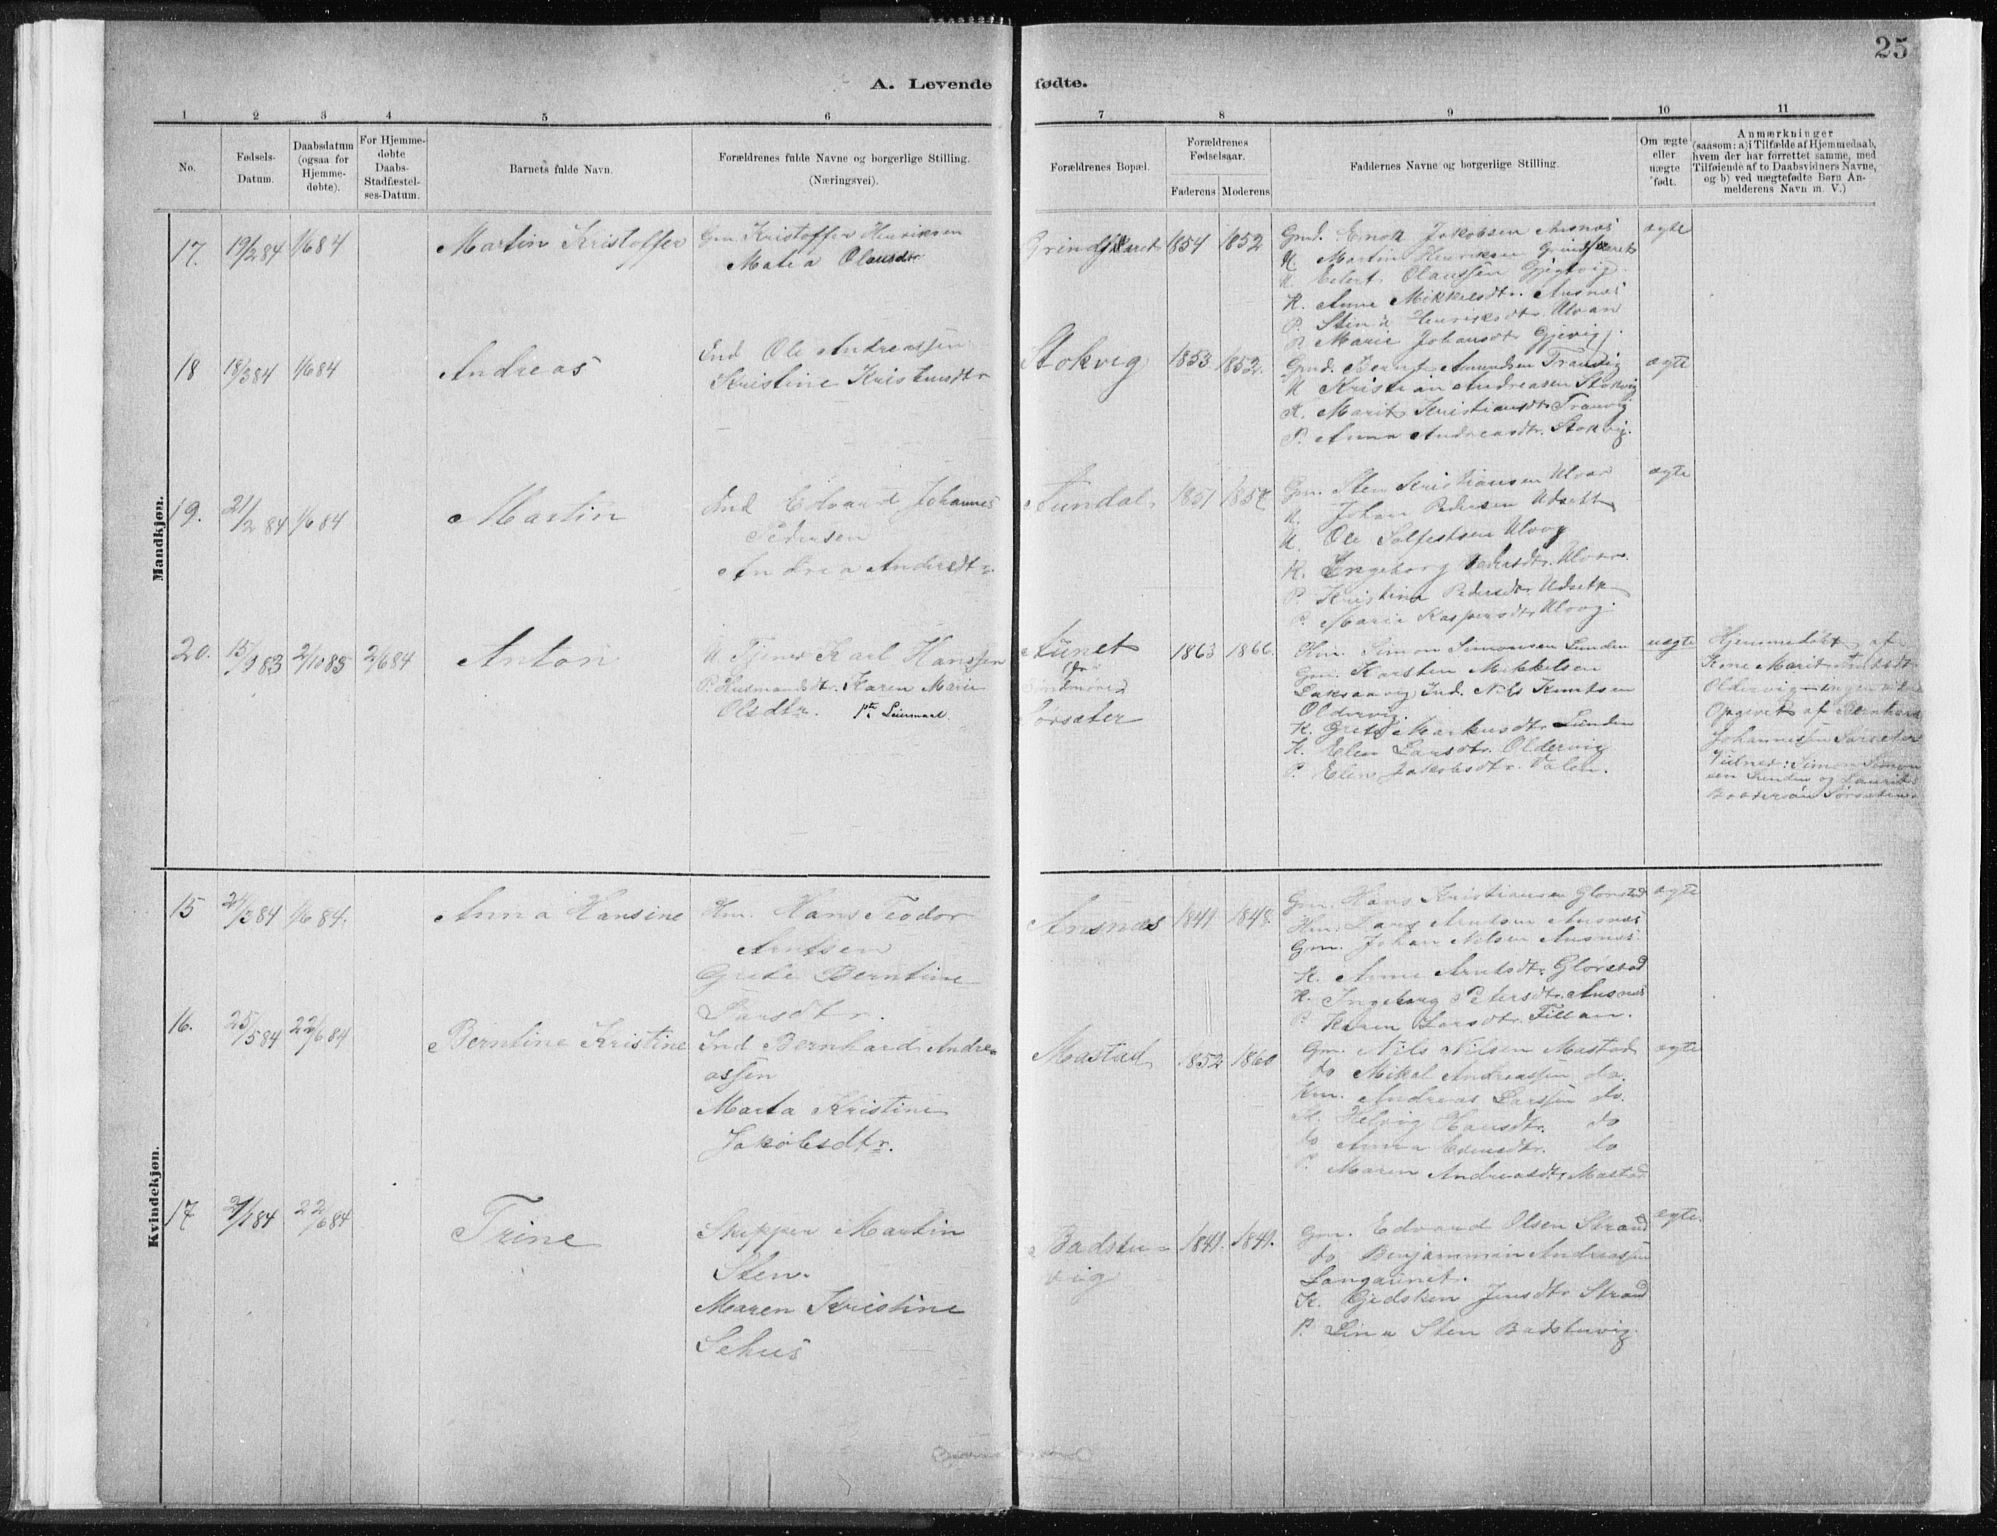 25
A. Levende fødte.
1 2 3 4 5 6 7 8 9 10 11
No.
Fødsels-Datum.
Daabsdatum (ogsaa for Hjemme-døbte).
For Hjemme-døbte Daabs-Stadfæstel-ses-Datum.
Barnets fulde Navn.
Forældrenes fulde Navne og borgerlige Stilling. (Næringsvei).
Forældrenes Bopæl.
Forældrenes Fødselsaar.
Faderens Moderens
Faddernes Navne og borgerlige Stilling.
Om ægte eller uægte født.
Anmærkninger (saasom: a) i Tilfælde af Hjemmedaab, hvem der har forrettet samme, med Tilføiende af to Daabsvidners Navne, og b) ved uægtefødte Børn An-melderens Navn m. V.)
Mandkjøn.
17. 19/2 84 1/6 84 Martin Kristoffer
Gm. Kristoffer Henriksen
Olausdtr
Grindskaret 1854 1852
Gmd. Enok Jakobsen Ansnæs ægte
U. Martin Henriksen Grindskaret
U. Olaussen
K. Anne Mikkelsdtr. Ansnæs
P. Henriksdtr. Ulvan
P. Marie Johansdtr
18 18/3 84 1/6 84 Andreas
Ind Ole Andreassen
Kristine
Stokvig 1853 1852.
Gmd. Bernt Amundsen Tranvig ægte
U Kristian Andreasen Stokvig
K. Marit Kristiansdtr. Tranvig
P. Anna Andreasdtr. Stokvig.
19. 21/2 84 1/6 84 Martin
Ind Edvard Johannes
Pedersen
Andrea
Gm. Sten Kristiansen Ulvan ægte
U. Johan Pedersen
U. Ole
K. Engeborg Pedersdtr. Ulvan
P. Kristina Pedersdtr.
P. Marie Kaspersdtr.
20. 15/9 83 2/10 83 2/6 84 Anton
U Tjener Karl Hanssen
P. Husmandsdtr. Karen Marie
Olsdtr. 1ste Leiermaal
Aunet
Sørsæter
1863 1866.
Simon Simonsen Sunden uægte
Gm. Karsten Mikkelsen
Laksaavig, Ind. Nils Knutsen
Oldervig.
K. Grete Markusdtr. Sunden
K. Elen Larsdtr. Oldervig
P. Elen Jakobsdtr. Valen.
Hjemmedøbt af
Kone Marit
Oldervig
Opgivet af Bernhard
Johannessen Sørsæter
Vidner: Simon Simon
sen Sunden og
Kvindekjøn.
15 1/6 84. Anna Hansine
Hm. Hans Teodor
Arntsen
Grete Berntine
Larsdtr.
Ansnæs 1841 1848.
Gm. Hans Kristiansen Glørstad ægte
Hm. Lars Arntsen Ansnæs
Gm. Johan Nilsen Ansnæs
K. Anne Arntsdtr. Glørstad
K. Ingeborg Petersdtr. Ansnæs
P. Karen Larsdtr. Fillan.
16. 25/5 84 22/6 84 Berntine Kristine
Ind Bernhard Andre-
assen
Marta Kristine
Jakobsdtr.
Mastad 1852 1860
Gm. Nils Nilsen Mastad ægte
do Mikal Andreassen do.
Km. Andreas Larssen do.
K. Helvig Hansdtr. do
do Anna do
P. Maren Andreasdtr. Mastad
17 22/6 84 Trine
Skipper Martin
Sten.
Maren Kristine
Sehus
Badstu-
vig
1841. 1841.
Gm. Edvard Olsen Strand ægte.
do Benjammin Andreassen
Langaunet.
K. Gjedsken Jensdtr. Strand
P. Lina Sten Badstuvig.